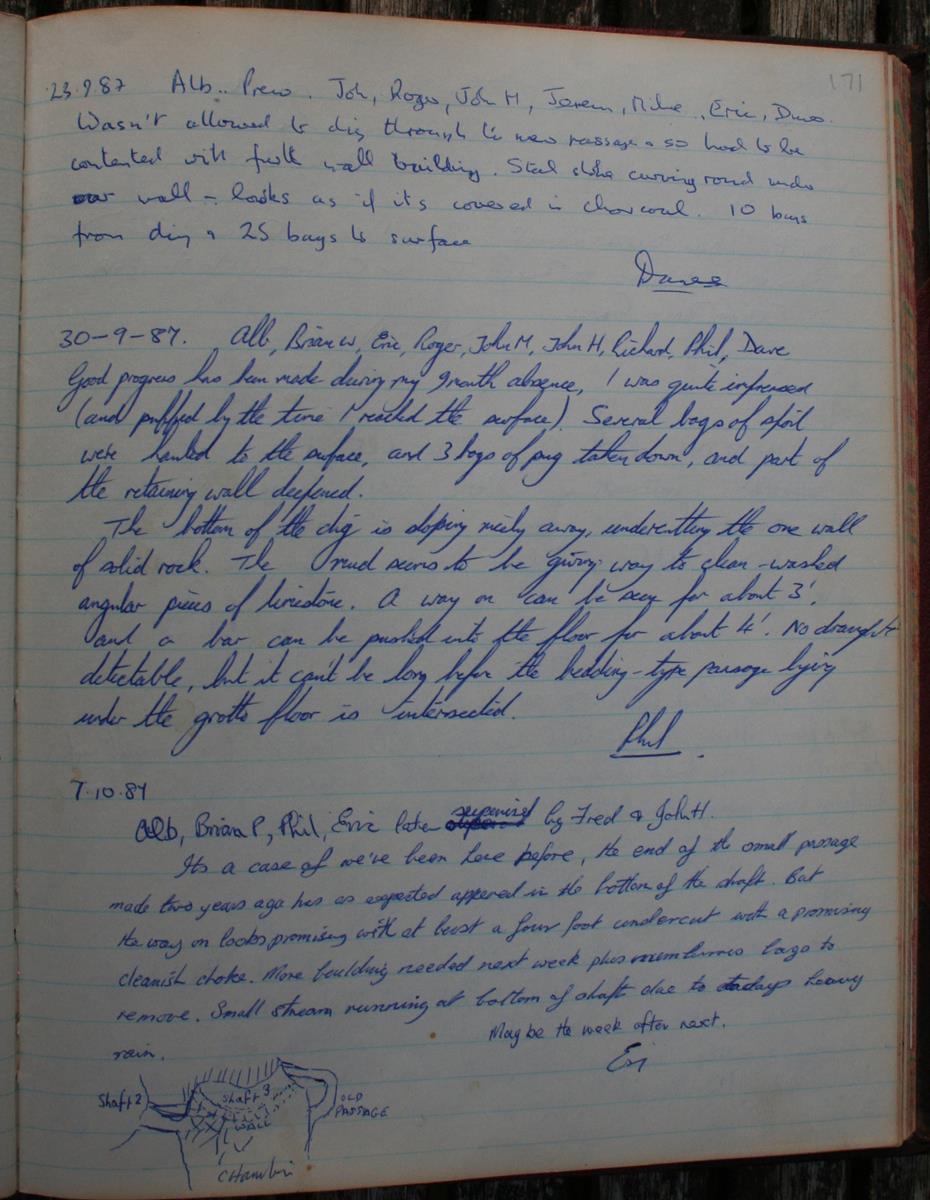 171
23.9.87 Alb.. Prew. Joh, Roger, John M, Jerem, Mike, Eric, Dave.
Wasn't allowed to dig through to new passage & so had to be
contented with wall building. Steel curving round under
our wall - looks as if it's covered in charcoal. 10 bags
from dig & 25 bags to surface
Dave
30-9-87. Alb, Brian W, Eric, Roger, John M, John H, Richard, Phil, Dave
Good progress has been made during my 9 month absence, I was quite impressed
(and puffed by the time I reached the surface). Several bags of spoil
were hauled to the surface, and 3 bags of pug taken down, and part of
the retaining wall deepened.
The bottom of the dig is sloping nicely away, undercutting the one wall
of solid rock. The mud seems to be giving way to clean-washed
angular pieces of limestone. A way on can be seen for about 3'.
and a bar can be pushed into the floor for about 4'. No draught
detectable, but it can't be long before the bedding-type passage lying
under the grotto floor is intersected.
Phil
7.10.87
Alb, Brian P, Phil, Eric late supervised by Fred & John H.
Its a case of we've been here before, the end of the small passage
made two years ago has as expected appered in the bottom of the shaft. But
the way on looks promising with at least a four foot undercut with a promising
cleanish choke. More building needed next week plus numerous bags to
remove. Small stream running at bottom of shaft due to todays heavy
rain.
Maybe the week after next.
Eric
Shaft 2
Shaft 3
WALL
OLD
PASSAGE
Chamber